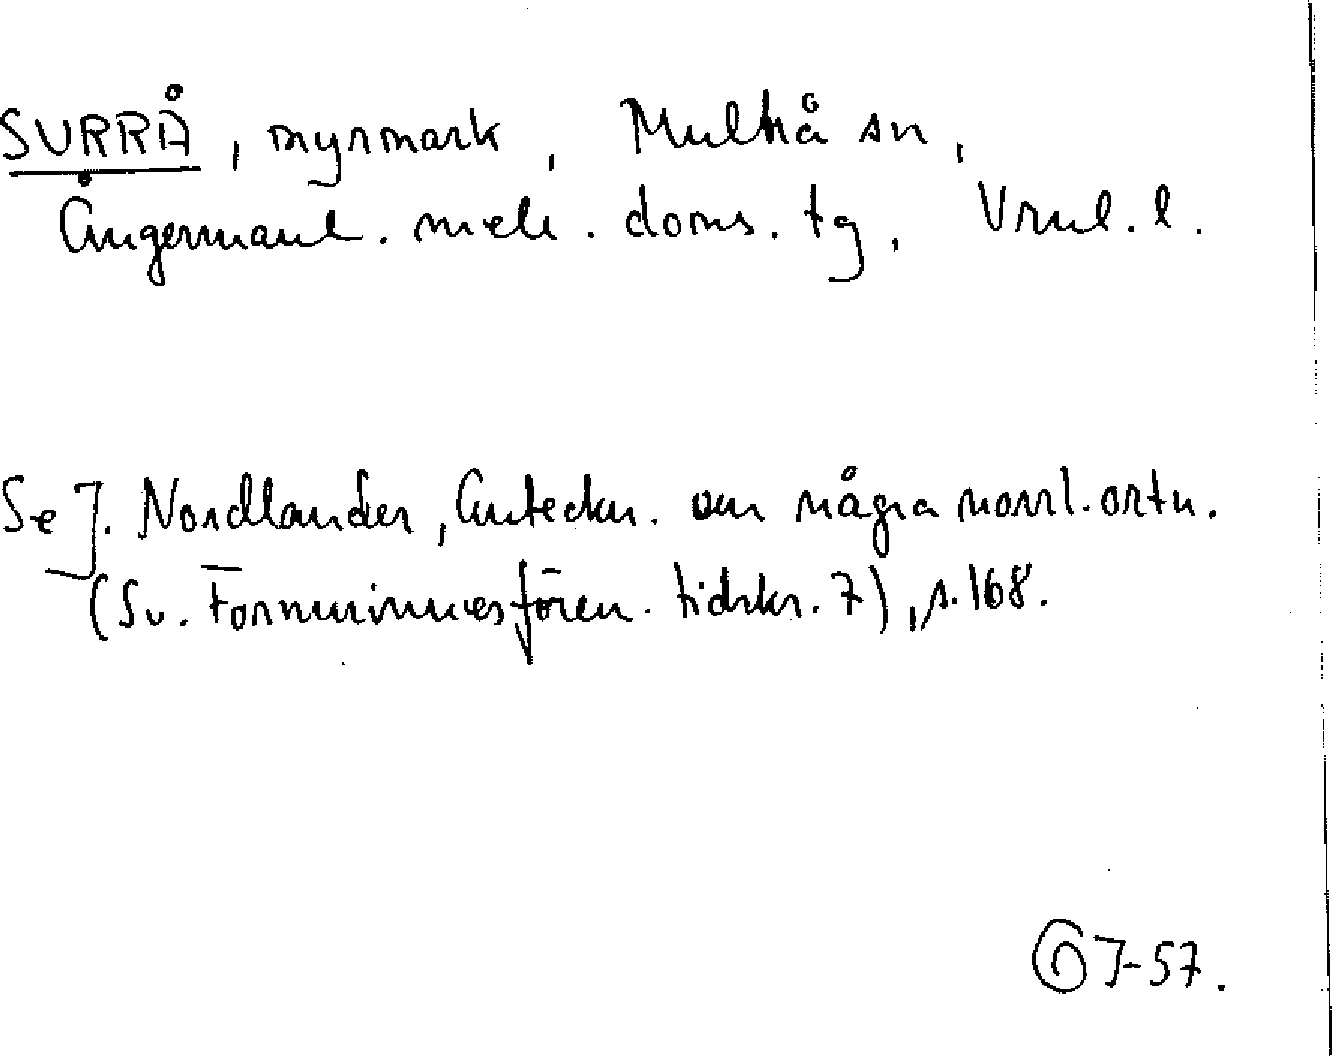 SURRÅ, myrmark, Multrå sn,
Ångermanl. mell. doms. tg, Vrnl. l.
Se J. Nordlander, Anteckn. om några norrl. ortn.
(Sv. Fornminnesfören. tidskr. 7), s. 168.
57.